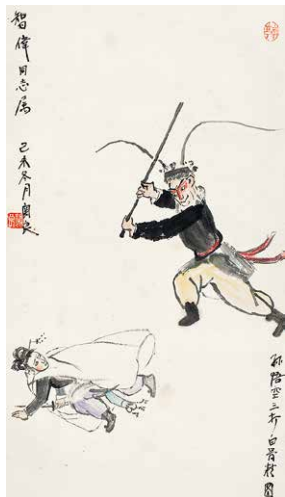 智偉同志属
己未冬月関良
孙悟空三打白骨精